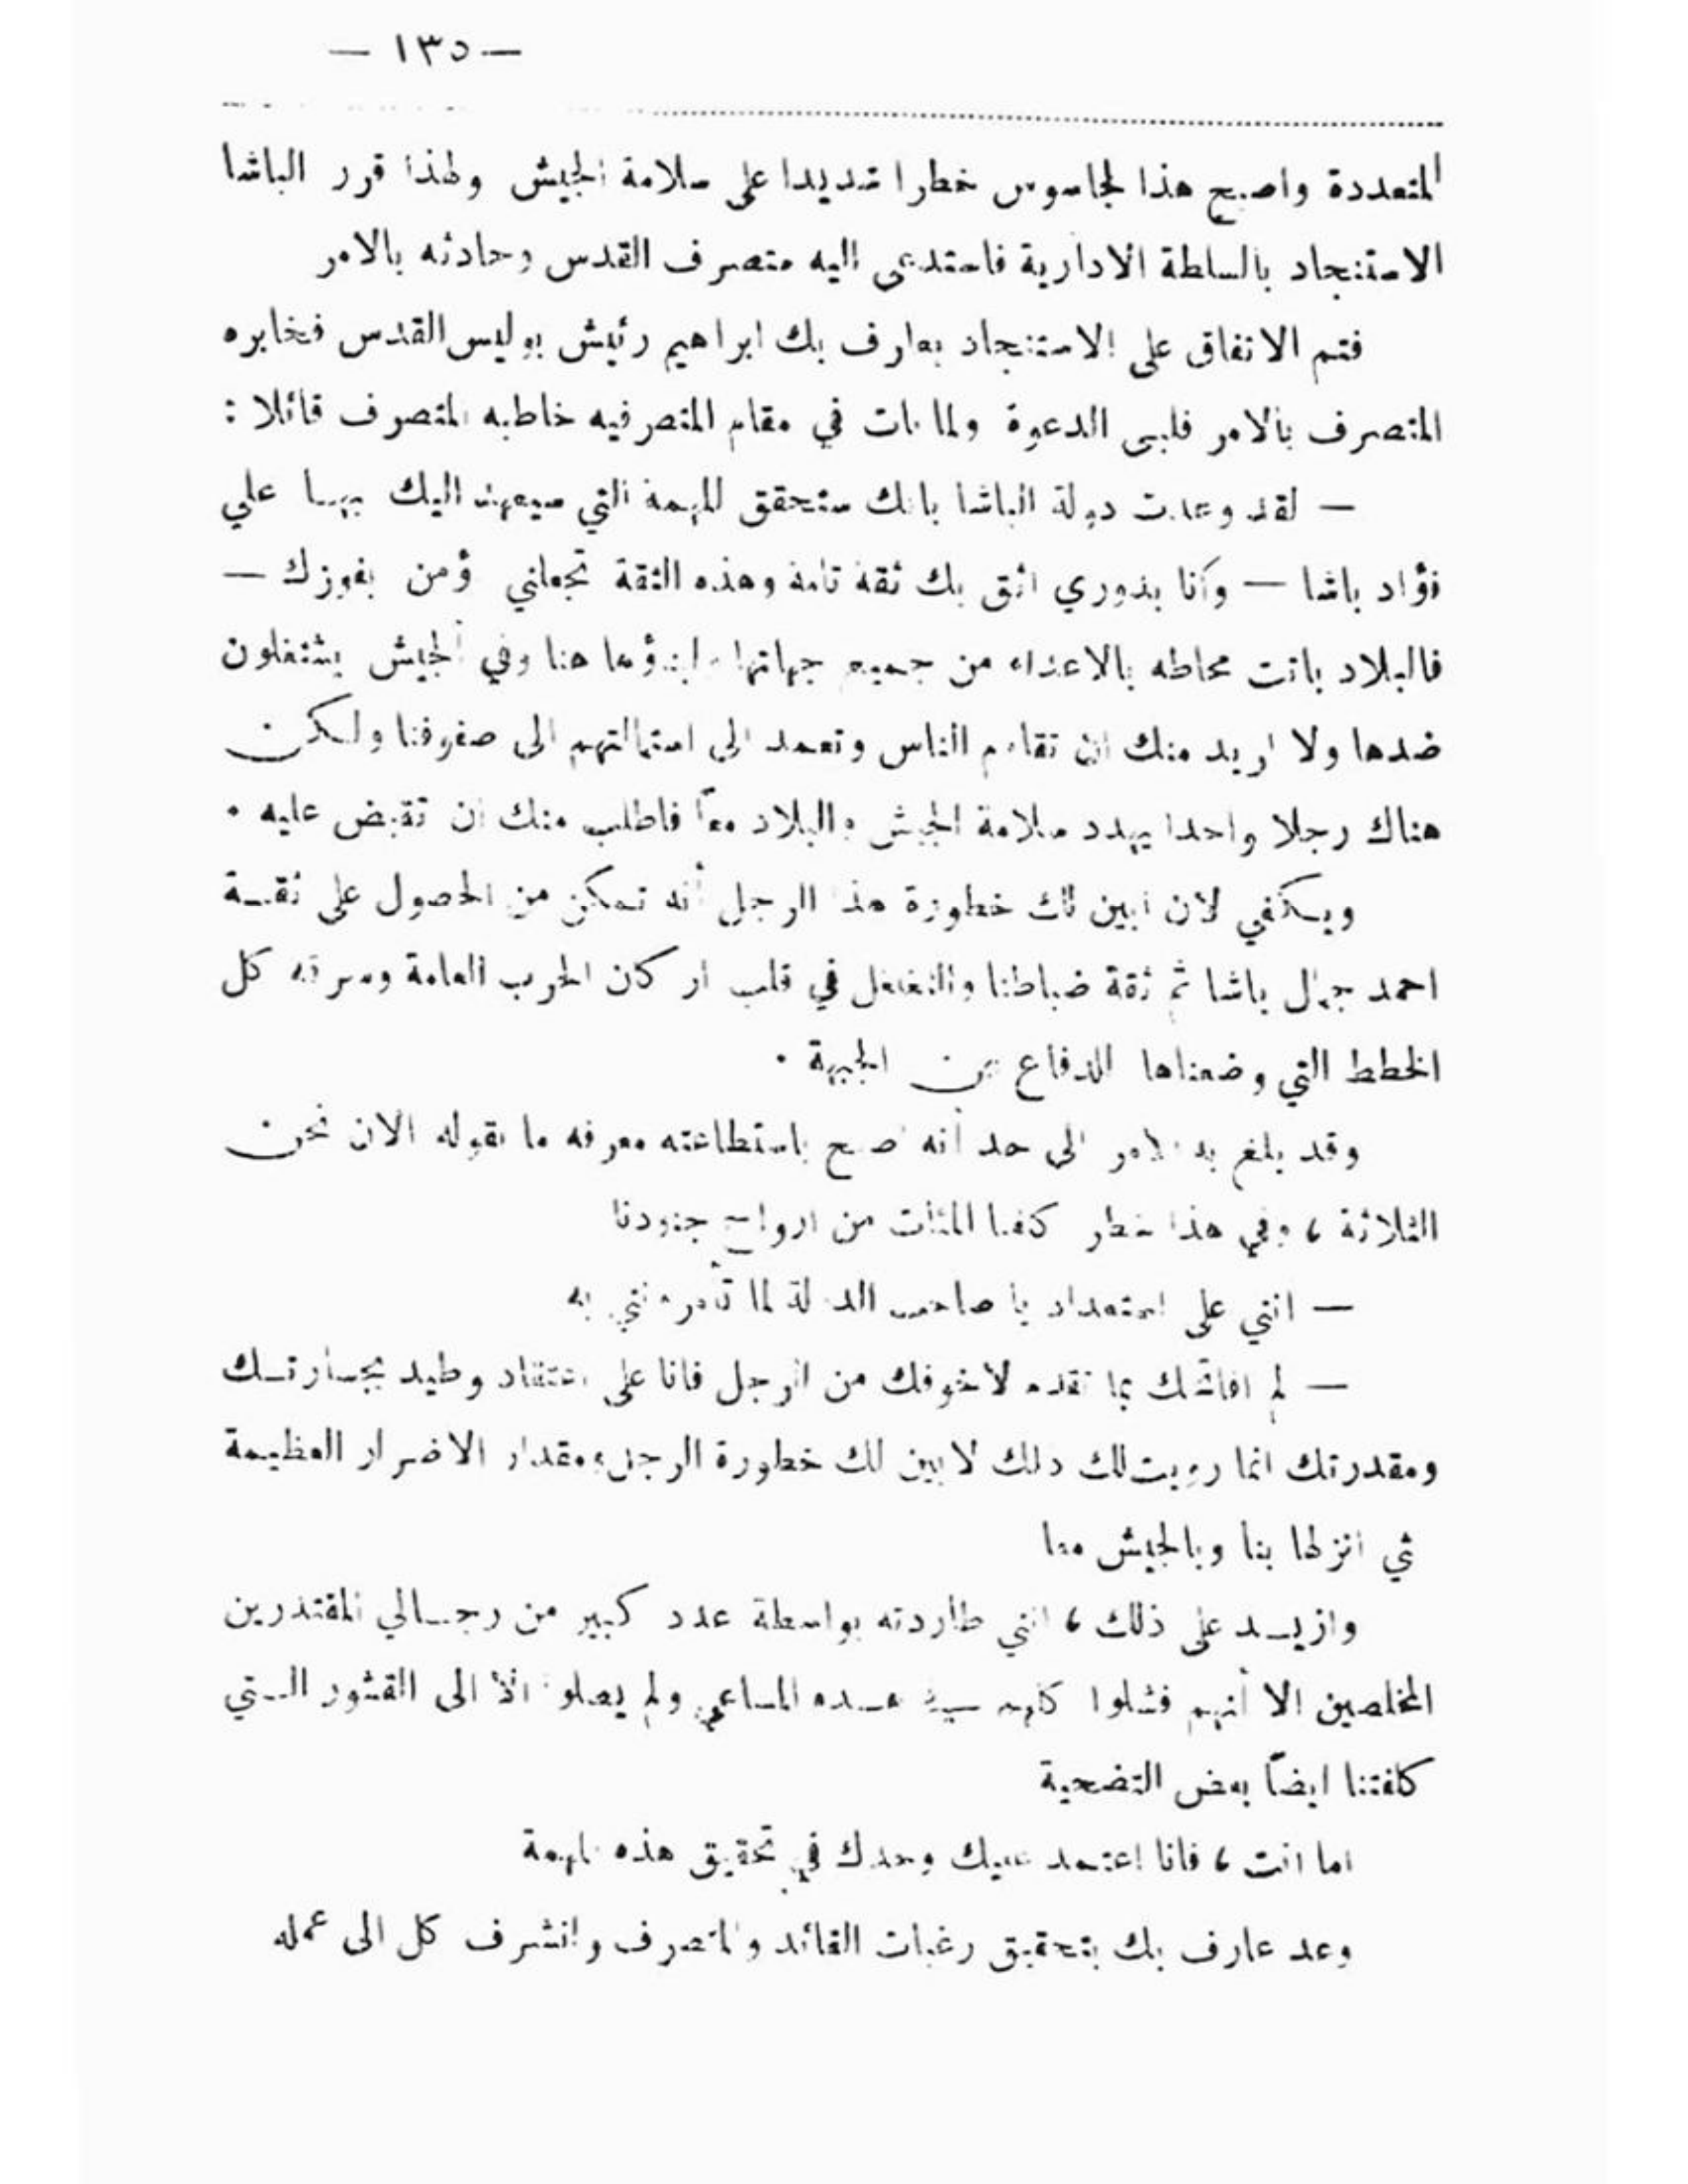 — ١٣٥ —
المتعددة واصبح هذا الجاسوس خطرا شديدا على سلامة الجيش ولهذا قرر الباشا
الاستنجاد بالسلطة الادارية فاستدعى اليه متصرف القدس وحادثه بالامر
فتم الاتفاق على الاستنجاد بعارف بك ابراهيم رئيس بوليس القدس فخابره
المتصرف بالامر فلبى الدعوة ولما بات في مقام المتصرفيه خاطبه المتصرف قائلا :
— لقد وعدت دولة الباشا بانك ستحقق المهمة التي سيعهد اليك بهـا علي
فؤاد باشا — وأنا بدوري اثق بك ثقة تامة وهذه الثقة تجعلني ؤمن بفوزك —
فالبلاد باتت محاطه بالاعداء من جميع جهاتها وابناؤها هنا وفي الجيش يشتغلون
ضدها ولا اريد منك ان تقاوم الناس وتعمد الى استمالتهم الى صفوفنا ولكن
هناك رجلا واحدا يهدد سلامة الجيش والبلاد معاً فاطلب منك ان تقبض عليه .
ويكفي لان ابين لك خطورة هذا الرجل أنه تمكن من الحصول على ثقـة
احمد جمال باشا ثم ثقة ضباطنا والتغلغل في قلب اركان الحرب العامة وسرقة كل
الخطط التي وضعناها للدفاع عن الجبهة .
وقد بلغ به الامر الى حد أنه اصبح باستطاعته معرفه ما نقوله الان نحن
الثلاثة ، وفي هذا خطر كلفنا المئات من ارواح جنودنا
— انني على استعداد يا صاحب الدولة لما تأمرونني به
— لم افاتحك بما تقدم لاخوفك من الرجل فانا على اعتقاد وطيد بجسارتـك
ومقدرتك انما رويت لك دلك لابين لك خطورة الرجل ومقدار الاضرار العظيمة
تي انزلها بنا وبالجيش معا
وازيـد على ذلك ، انني طاردته بواسطة عدد كبير من رجـالي المقتدرين
المخلصين الا أنهم فشلوا كلهم في هـذه المساعي ولم يصلوا الا الى القشور الـتي
كلفتنا ايضاً بعض التضحية
اما انت ، فانا اعتمد عليك وحدك في تحقيق هذه المهمة
وعد عارف بك بتحقيق رغبات القائد والمتصرف وانشرف كل الى عمله